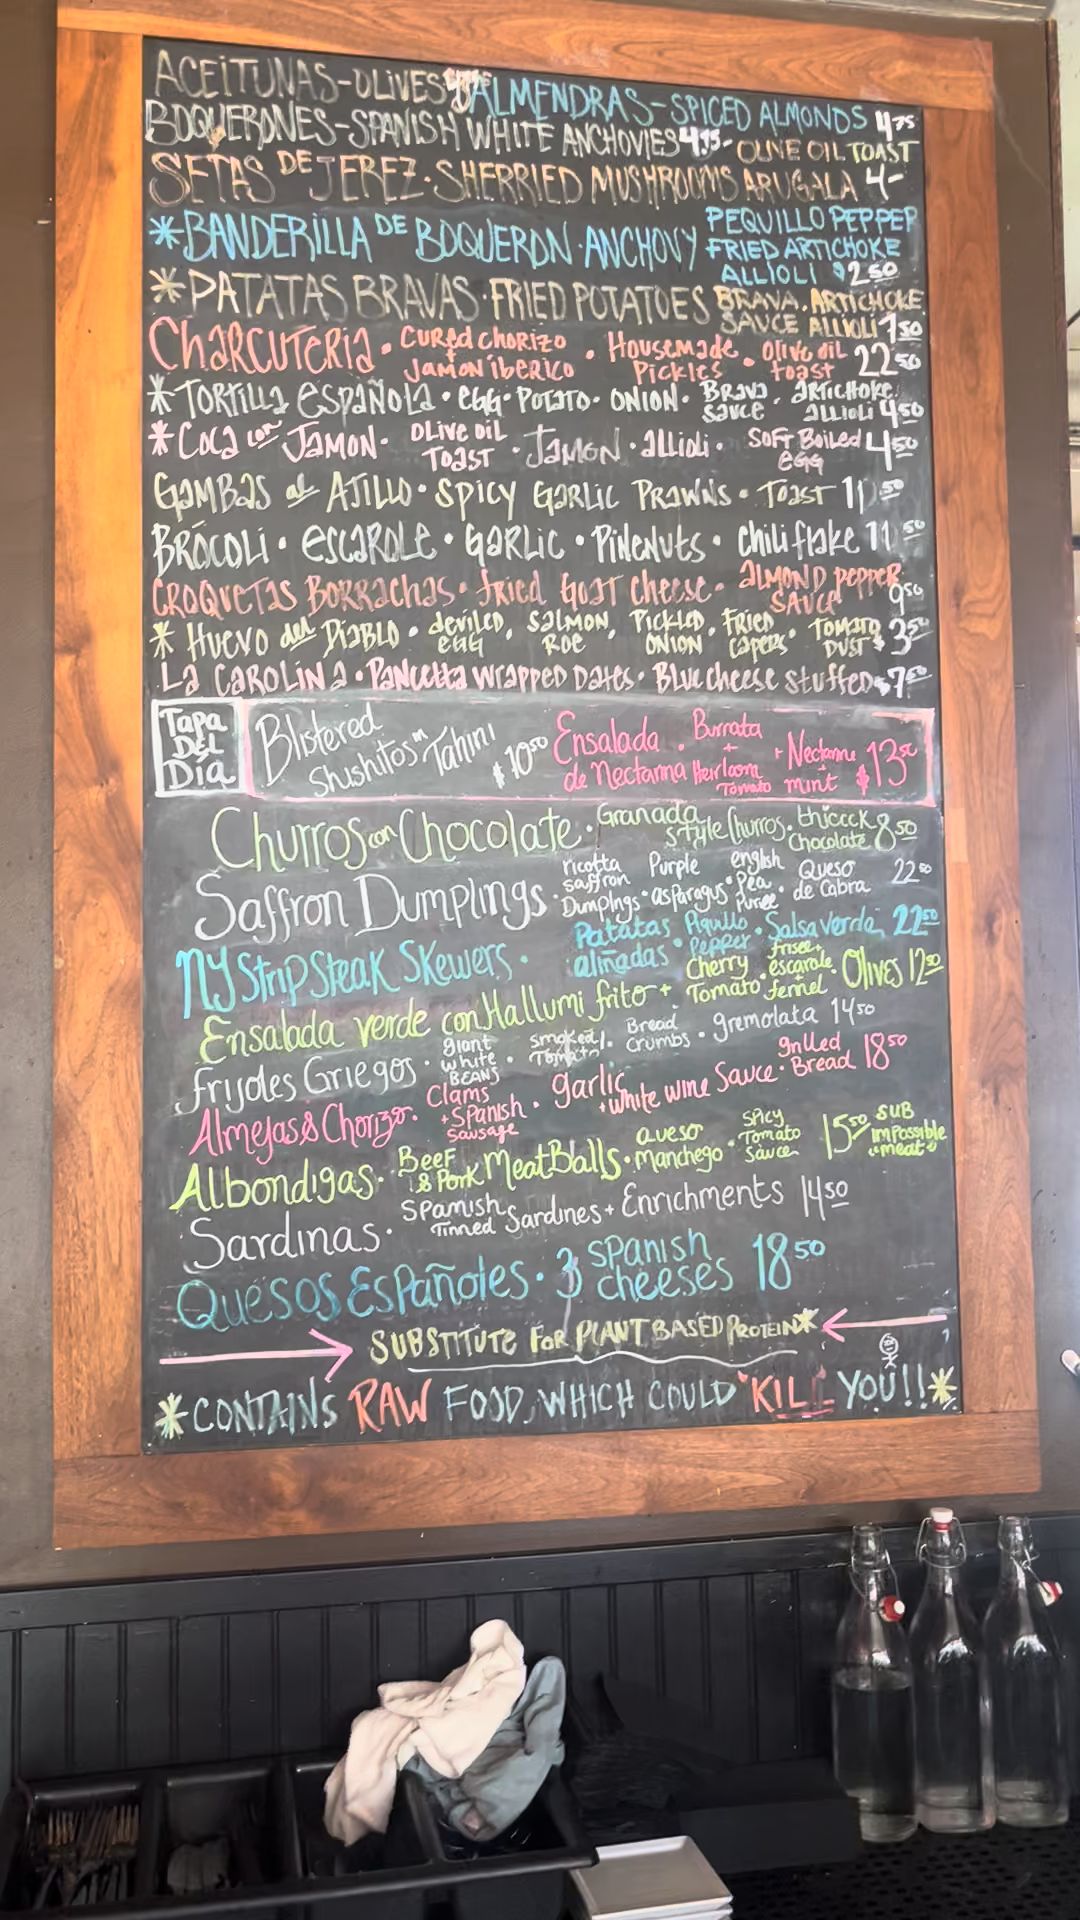 ACEITUNAS-OLIVES ALMENDRAS-SPICED ALMONDS 4.75
BOQUERONES-SPANISH WHITE ANCHOVIES 4.75- OLIVE OIL TOAST
SETAS DE JEREZ·SHERRIED MUSHROOMS ARUGALA 4-
*BANDERILLA DE BOQUERON·ANCHOVY PEQUILLO PEPPER FRIED ARTICHOKE ALLIOLI $2.50
*PATATAS BRAVAS·FRIED POTATOES BRAVA SAUCE·ARTICHOKE ALLIOLI 7.50
CHARCUTERIA·CURED CHORIZO + JAMON IBERICO·HOUSEMADE PICKLES·OLIVE OIL TOAST 22.50
*TORTILLA ESPAÑOLA·EGG·POTATO·ONION·BRAVA SAUCE·ARTICHOKE ALLIOLI 4.50
*COCA CON JAMON·OLIVE OIL TOAST·JAMON·ALLIOLI·SOFT BOILED EGG 4.50
GAMBAS al AJILLO·SPICY GARLIC PRAWNS·TOAST 11.50
BRÓCOLI·ESCAROLE·GARLIC·PINENUTS·chili flake 11.50
CROQUETAS BORRACHAS·fried Goat cheese·ALMOND PEPPER SAUCE 9.50
*HUEVO del DIABLO·deviled EGG·SALMON ROE·PICKLED ONION·FRIED CAPERS·TOMATO DUST $3.50
LA CAROLINA·PANCETTA WRAPPED DATES·BLUE cheese stuffed $7.50
Tapa Del Día
Blistered Shishitos in Tahini $10.50
Ensalada de Nectarina·Burrata + Heirloom Tomato + Nectarine + mint $13.50
Churros con Chocolate·Granada style Churros·thiccck Chocolate 8.50
Saffron Dumplings·ricotta saffron Dumplngs·Purple asparagus·english Pea Puree·Queso de Cabra 22.00
NY Strip Steak Skewers·Patatas aliñadas·Piquillo Pepper·Salsa verde 22.50
Ensalada verde con Hallumi frito + Cherry Tomato·frisee + escarole + fennel·Olives 12.50
frijoles Griegos·giant white BEANS·smoked Tomato·Bread crumbs·gremolata 14.50
Almejas & Chorizo·Clams + Spanish sausage·garlic + white wine Sauce·grilled Bread 18.50
Albondigas·Beef & Pork MeatBalls·queso manchego·spicy Tomato sauce 15.50 SUB impossible "meat"
Sardinas·Spanish Tinned Sardines + Enrichments 14.50
Quesos Españoles·3 Spanish cheeses 18.50
SUBSTITUTE FOR PLANT BASED PROTEIN*
*CONTAINS RAW FOOD, WHICH COULD "KILL YOU!!*